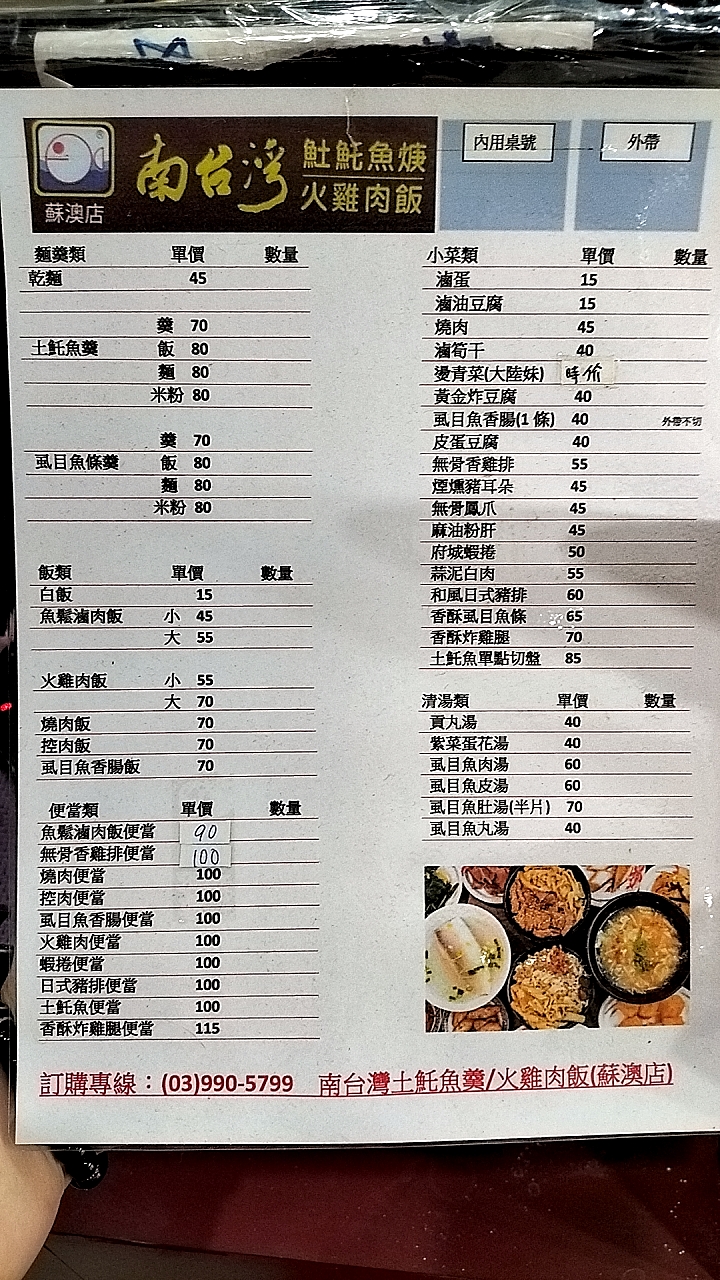 南台灣 𩵚魠魚焿
火雞肉飯
蘇澳店
內用桌號
外帶
麵羹類 單價 數量
乾麵 45
羹 70
土魠魚羹 飯 80
麵 80
米粉 80
羹 70
虱目魚條羹 飯 80
麵 80
米粉 80
飯類 單價 數量
白飯 15
魚鬆滷肉飯 小 45
大 55
火雞肉飯 小 55
大 70
燒肉飯 70
控肉飯 70
虱目魚香腸飯 70
便當類 單價 數量
魚鬆滷肉飯便當 90
無骨香雞排便當 100
燒肉便當 100
控肉便當 100
虱目魚香腸便當 100
火雞肉便當 100
蝦捲便當 100
日式豬排便當 100
土魠魚便當 100
香酥炸雞腿便當 115
小菜類 單價 數量
滷蛋 15
滷油豆腐 15
燒肉 45
滷筍干 40
燙青菜(大陸妹) 時价
黃金炸豆腐 40
虱目魚香腸(1 條) 40 外帶不切
皮蛋豆腐 40
無骨香雞排 55
煙燻豬耳朵 45
無骨鳳爪 45
麻油粉肝 45
府城蝦捲 50
蒜泥白肉 55
和風日式豬排 60
香酥虱目魚條 65
香酥炸雞腿 70
土魠魚單點切盤 85
清湯類 單價 數量
貢丸湯 40
紫菜蛋花湯 40
虱目魚肉湯 60
虱目魚皮湯 60
虱目魚肚湯(半片) 70
虱目魚丸湯 40
訂購專線：(03)990-5799 南台灣土魠魚羹/火雞肉飯(蘇澳店)